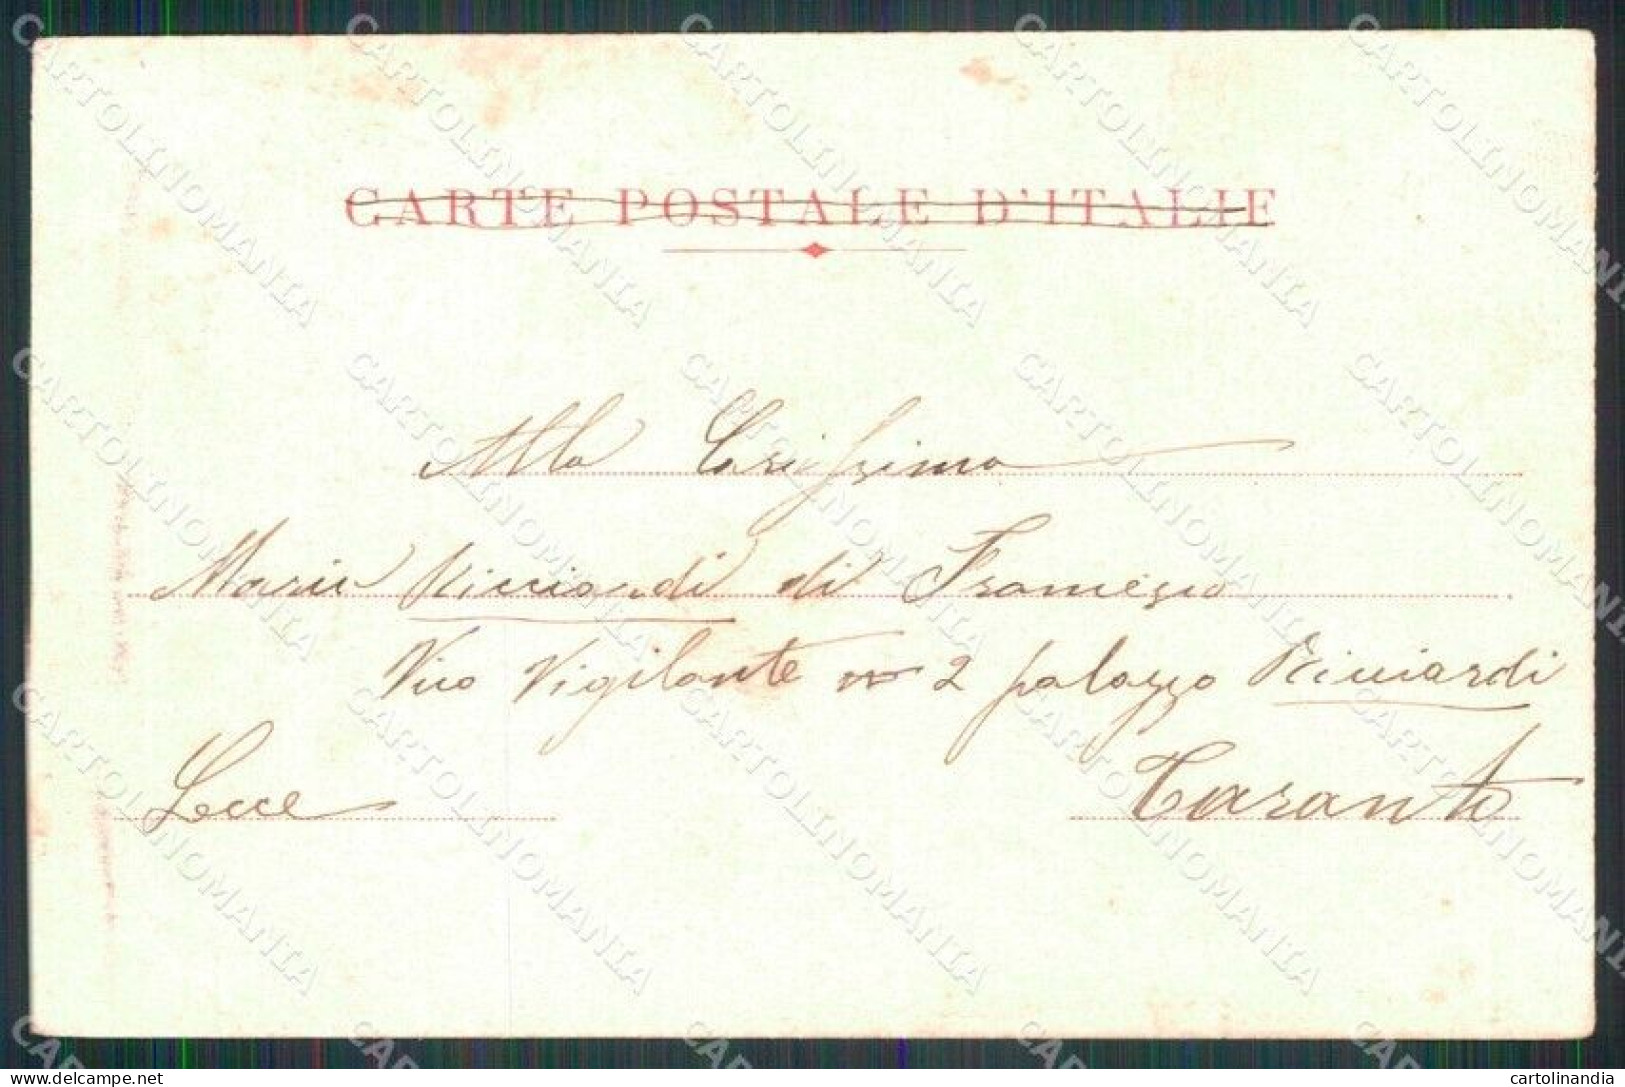 CARTE POSTALE D'ITALIE
Alla Carissima
Maria Ricciardi di Francesco
Vico Vigilante n 2 palazzo Ricciardi
Lecce
Taranto
CARTOLINOMANIA
cartolinandia